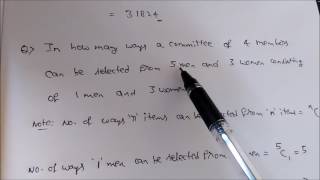 = 31824
Q) In how many ways a committee of 4 members
can be selected from 5 men and 3 women consisting
of 1 men and 3 women
Note: no. of ways 'r' items can be selected from 'n' items = ⁿC
No. of ways '1' men can be selected from men = ⁵C₁ = 5